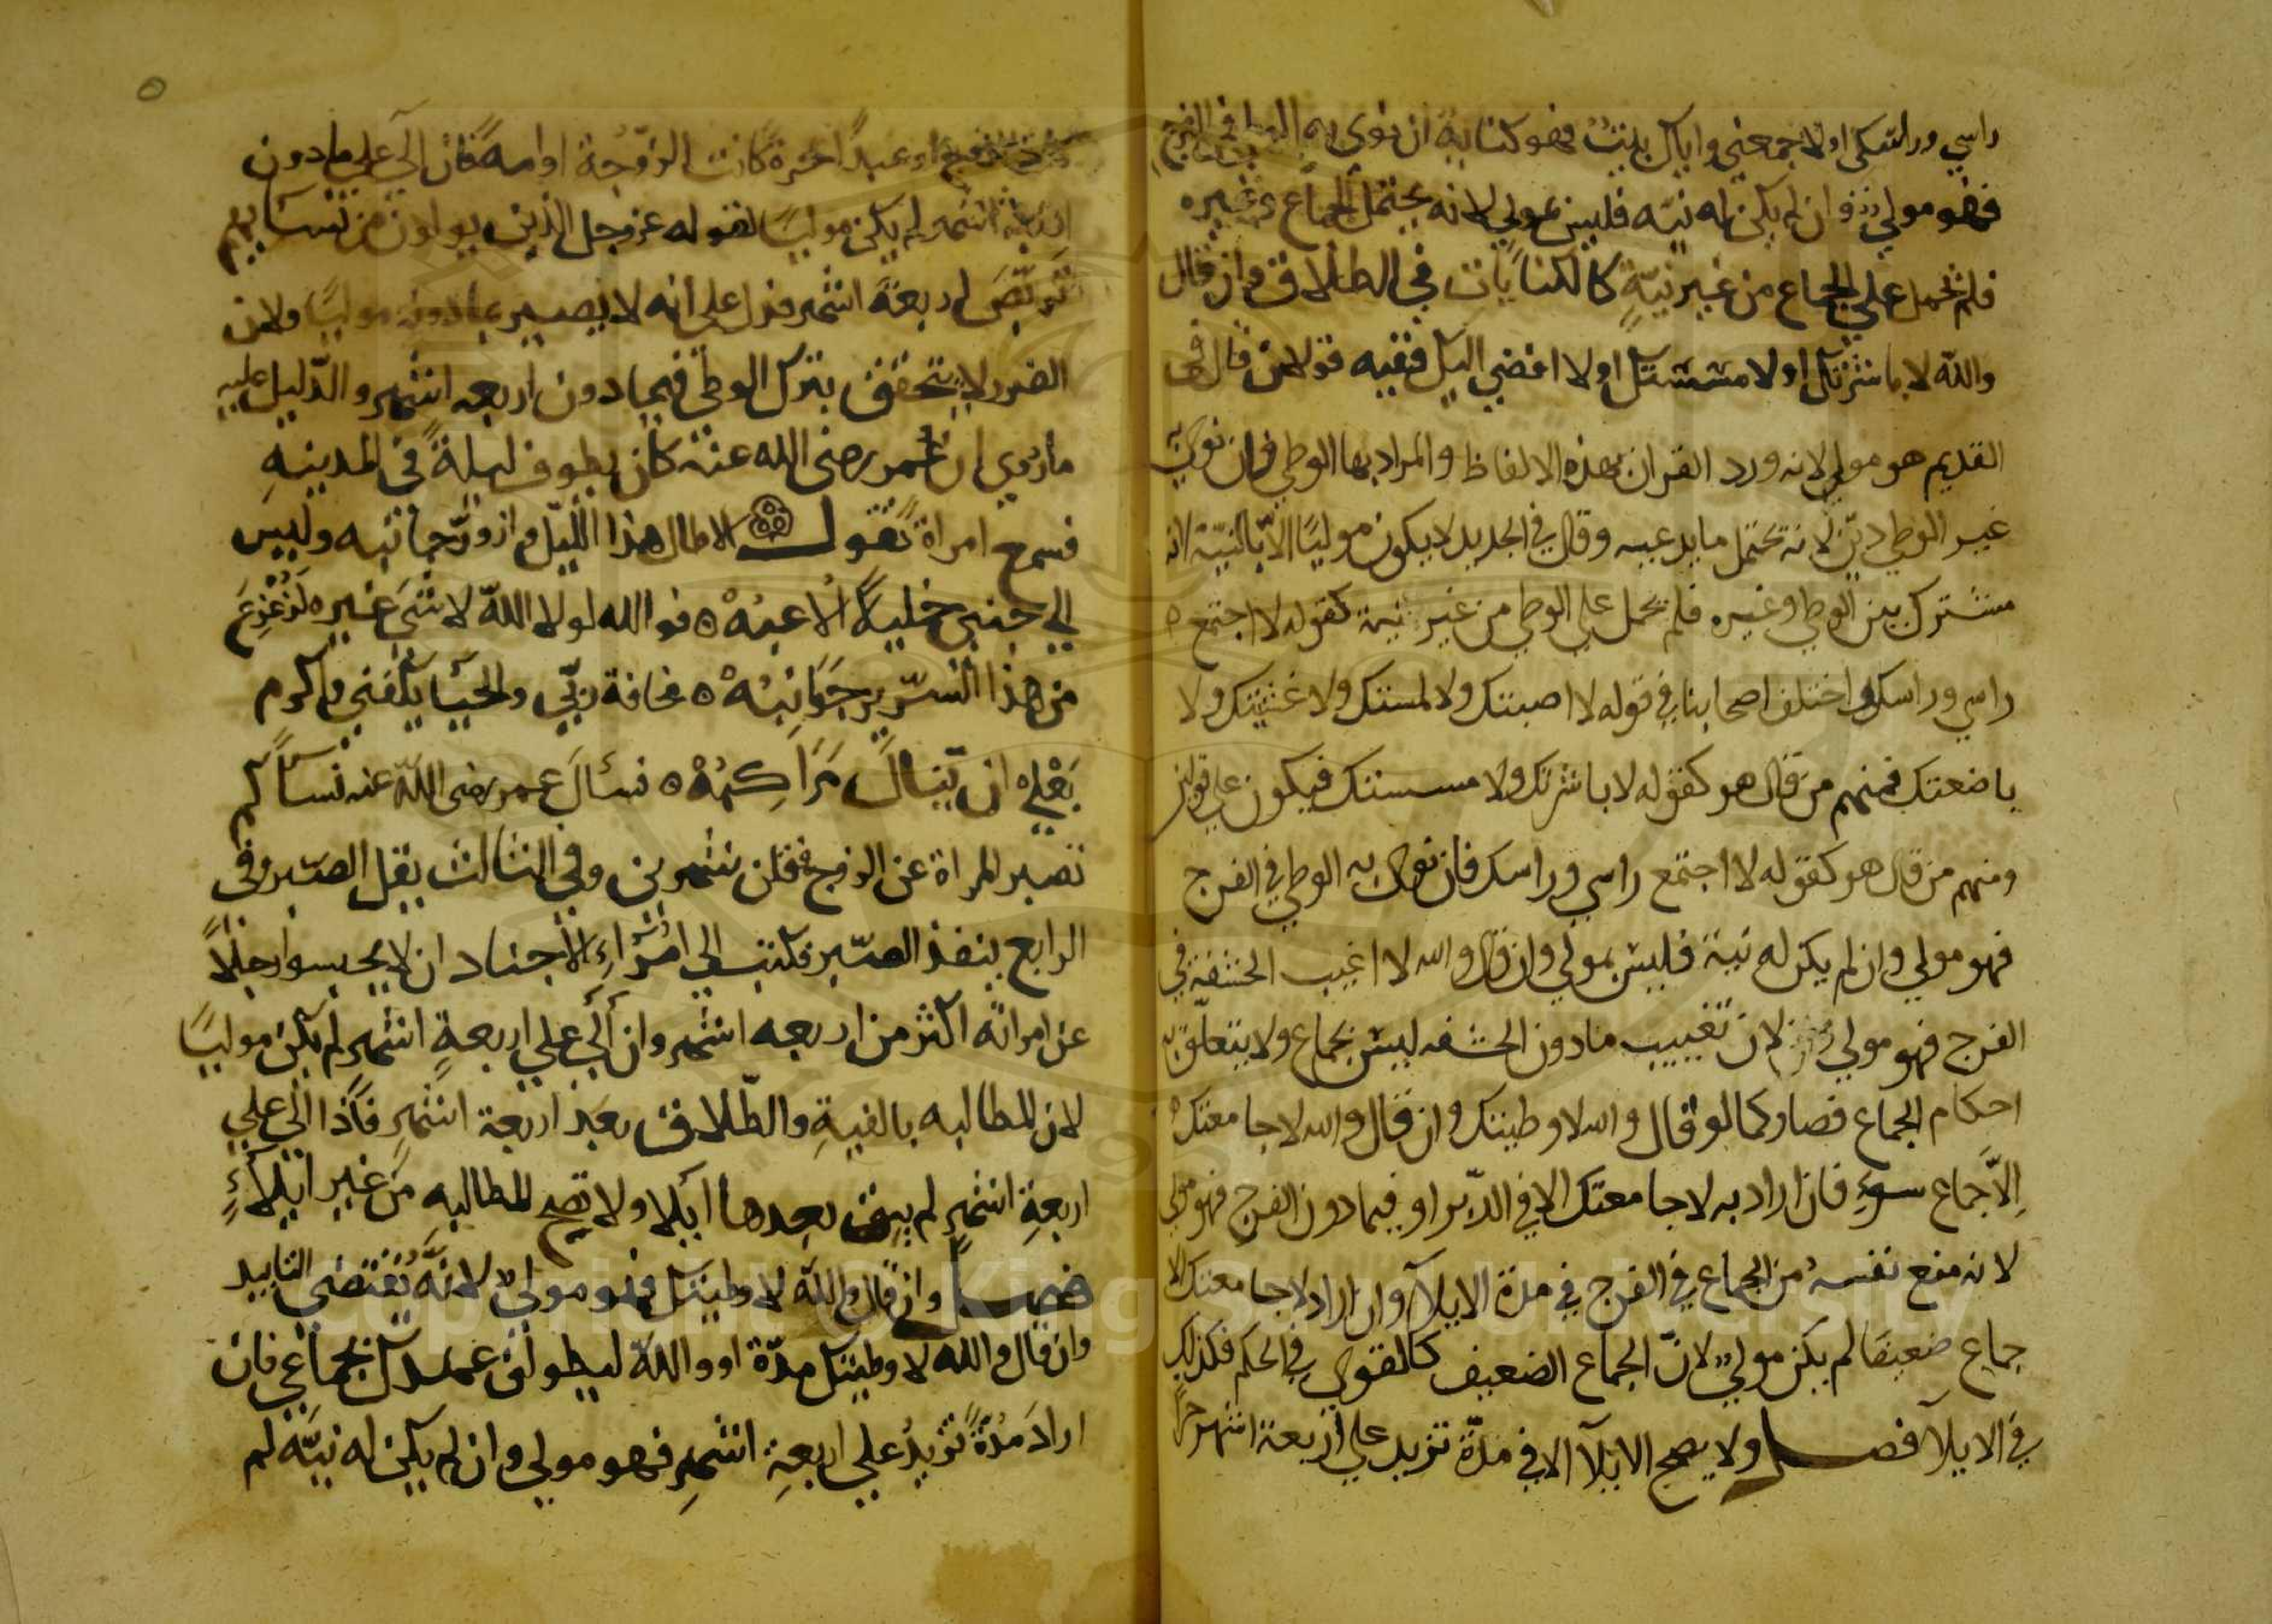 راسي وراسكي او لا جمعني واياك بيت فهو كناية ان نوى به الوطي في الفرج
فهو مولي وان لم يكن له نيه فليس بمولي لانه يحتمل الجماع وغيره
فلم تحمل علي الجماع من غير نيّةٍ كالكنايات في الطلاق وان قال
والله لا باشرتك او لا مسستك او لا افضي اليك ففيه قولان قال في
القديم هو مولي لانه ورد القران بهذه الالفاظ والمراد بها الوطي فان نوى به
غير الوطي ديّن لانه تحتمل ما يدعيه وقال في الجديد لا يكون موليًا الا بالنيّة لانه
مشترك بين الوطي وغيره فلم تحمل علي الوطي من غير نية كقوله لا اجتمع
راسي وراسك واختلف اصحابنا في قوله لا اصبتك ولا لمستك ولا غشيتك ولا
باضعتك فمنهم من قال هو كقوله لا باشرتك ولا مسستك فيكون علي قولين
ومنهم من قال هو كقوله لا اجتمع راسي وراسك فان نوى به الوطي في الفرج
فهو مولي وان لم يكن له نية فليس بمولي وان قال والله لا اغيب الحشفة في
الفرج فهو مولي لان تغييب مادون الحشفه ليس بجماع ولا يتعلّق به
احكام الجماع فصار كما لو قال والله لا وطيتك وان قال والله لا جامعتك
اِلاّ جماع سوءٍ فان اراد به لا جامعتك الا في الدّبر او فيما دون الفرج فهو مولي
لانه منع نفسه من الجماع في الفرج في مدة الايلآ وان اراد لا جامعتك الا
جماع ضعيفا لم يكن مولي لانّ الجماع الضعيف كالقوي في الحكم فكذلك
في الايلآ فصل ولا يصح الايلآ الا في مدّة تزيد علي اربعة اشهر حرًا
كان الزوج او عبدًا حرة كانت الزوجة او امة فان آلي علي مادون
اربعة اشهر لم يكن موليًا لقوله عز وجل الذين يولون من نسايهم
تربّصَ اربعةَ اشهر فدل علي انه لا يصير بما دونه موليًا ولان
الضرر لا يتحقق بترك الوطي فيما دون اربعه اشهر والدّليل عليه
ما روي ان عمر رضى الله عنه كان يطوف ليلةً في المدينهِ
فسمع امراة تقول الا طال هذا الليل وازورّ جانبه وليس
الي جنبي خليلٌ الاعبهْ ه فوالله لولا اللّه لا شيَ غيره لزعزِعَ
من هذا السّرير جَوَانِبُهْ ه مخافة ربّي والحيا يكفني واكرم
بَعْلي ان تنالَ مَرَاكِبُهْ ه فسألَ عمر رضى اللّه عنه نسآ كم
تصبر المراة عن الزوج فقلن شهرين وفي الثالث يقل الصّبر وفي
الرابع ينفذ الصّبر فكتب الي امُرَاءِ الاجناد ان لا يحبسوا رجلاً
عن امراته اكثر من اربعه اشهر وان آلي علي اربعةِ اشهرٍ لم يكن موليًا
لان المطالبه بالفيةِ والطّلاق بعد اربعة اشهرٍ فاذا آلي علي
اربعةِ اشهرٍ لم يبق بعدها ايلا ولا تصح المطالبه من غير ايلآءٍ
فصل وان قال واللّه لا وطيتك فهو مولي لانّه يُقتضي التابيد
وان قال والله لا وطيتك مدّة او واللّه ليطولن عهدك بجماعي فان
ارادَ مُدّةً تزيدُ علي اربعةِ اشهرٍ فهو مولي وان لم يكن له نيّه لم